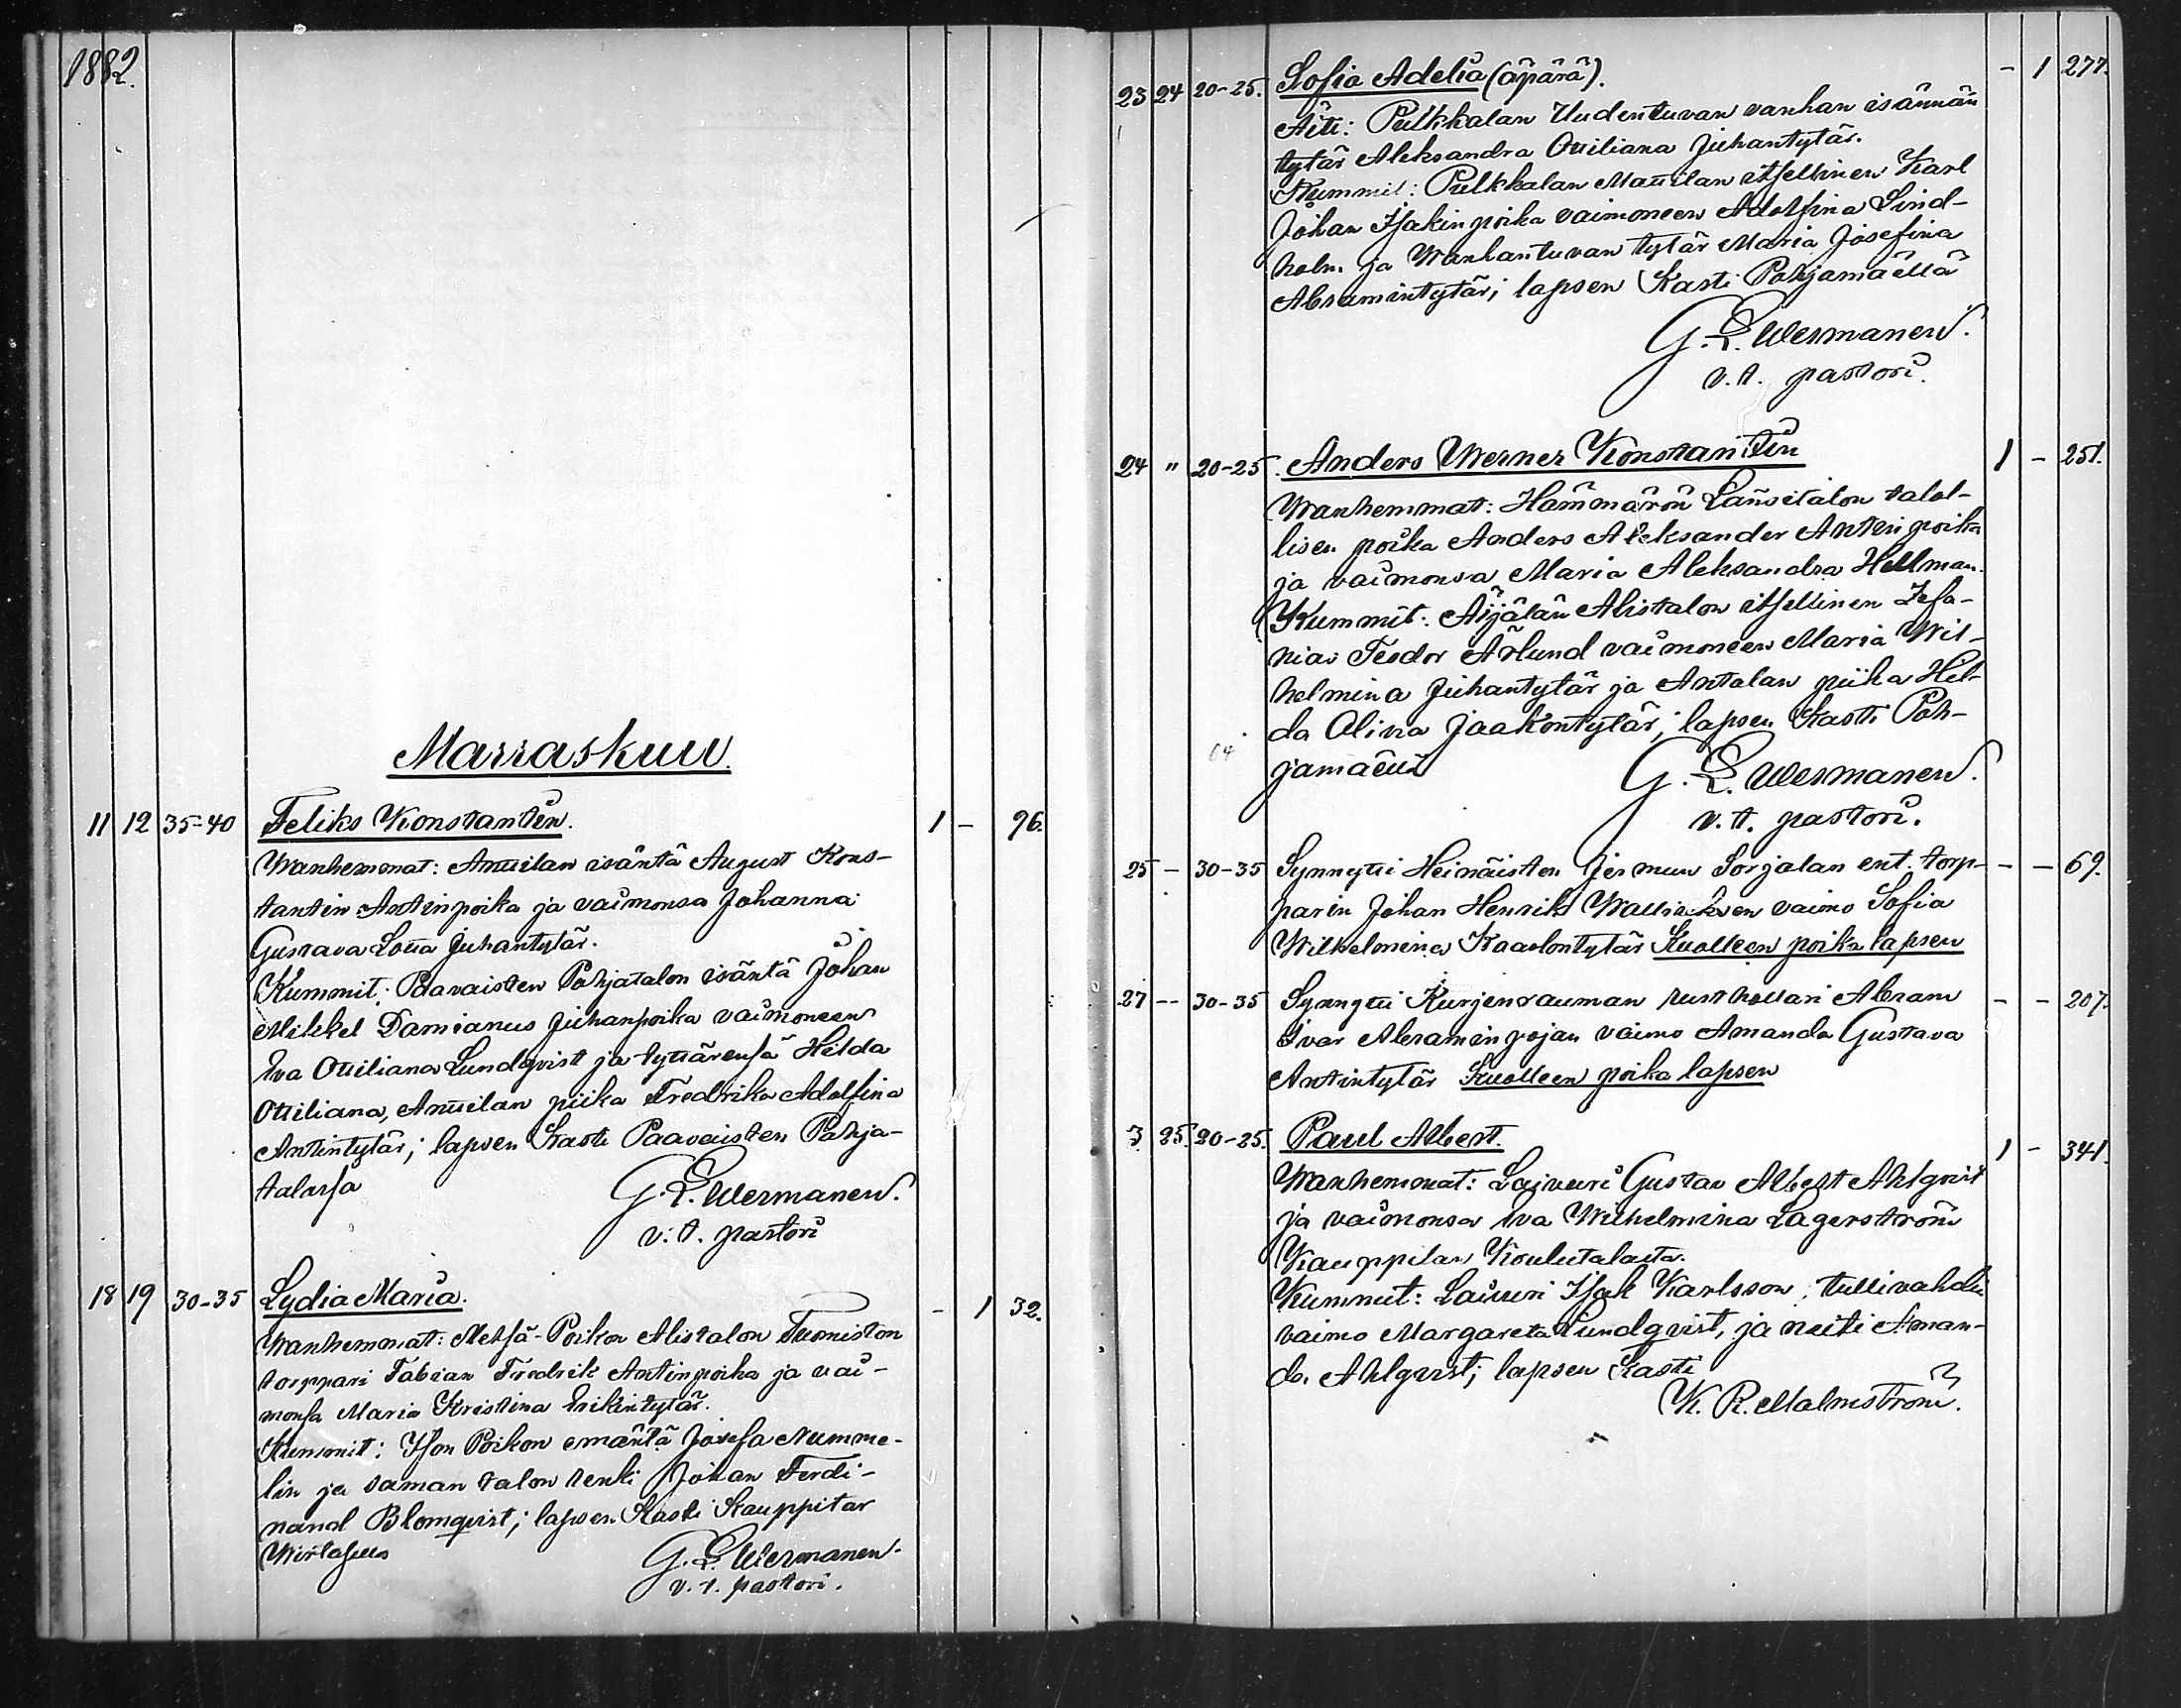 1882.
Marraskuu.
11 12 35-40 Feliks Konstantin. 1 - 96.
Wanhemmat: Anttilan isäntä August Kons-
tantin Antinpoika ja vaimonsa Johanna
Gustava Lotta Juhantytär.
Kummit: Paavaisten Pohjatalon isäntä Johan
Mikkel Damianus Juhanpoika vaimoneen
Eva Ottiliana Lundqvist ja tyttärensä Hilda
Ottiliana, Anttilan piika Fredrika Adolfina
Antintytär; lapsen kasti Paavaisten Pohja-
talossa
G. L. Wermanen.
v. t. pastori
18 19 30-35 Lydia Maria. - 1 32.
Wanhemmat: Metsä-Poikon Alistalon Tuomiston
torppari Fabian Fredrik Antinpoika ja vai-
monsa Maria Kristina Erikintytär.
Kummit: Ison Poikon emäntä Josefa Numme-
lin ja saman talon renki Johan Ferdi-
nand Blomqvist; lapsen kasti Kauppilan
G. L. Wermanen.
v. t. pastori.
23 24 20-25. Sofia Adelia (äpärä). - 1 277.
Äiti: Pulkkalan Uudentuvan vanhan isännän
tytär Aleksandra Ottiliana Juhantytär.
Kummit: Pulkkalan Mattilan itsellinen Karl
Johan Isakinpoika vaimoneen Adolfina Lind-
holm ja Wanhantuvan tytär Maria Josefina
Abramintytär; lapsen kasti Pohjamäellä
G. L. Wermanen.
v. t. pastori.
24 " 20-25. Anders Werner Konstantin 1 - 251.
Wanhemmat: Hämmärön Länsitalon talol-
lisen poika Anders Aleksander Antinpoika
ja vaimonsa Maria Aleksandra Hellman.
Kummit: Äijälän Alistalon itsellinen Zefa-
nias Teodor Åhlund vaimoneen Maria Wil-
helmina Juhantytär ja Anttalan piika Hil-
da Olivia Jaakontytär; lapsen kasti Poh-
64 jamäellä
G. L. Wermanen.
v. t. pastori.
25 - 30-35 Synnytti Heinäisten Jermun Sorjalan ent. torp- - - 69.
parin Johan Henrik vaimo Sofia
Wilhelmina Kaarlontytär Kuolleen poika lapsen
27 -- 30-35 Synnytti Kurjenrauman rusthollari Abram - - 207.
Ivar Abraminpojan vaimo Amanda Gustava
Antintytär Kuolleen poika lapsen
3 25. 20-25. Paul Albert. 1 - 341.
Wanhemmat: Laivuri Gustav Albert Ahlqvist
ja vaimonsa Eva Wilhelmina Lagerström
Kauppilan Koulutalosta.
Kummit: Laivuri Isak Karlsson, tullivahdin
vaimo Margareta Lundqvist, ja neiti Aman-
da Ahlqvist; lapsen kasti
K. R. Malmström.